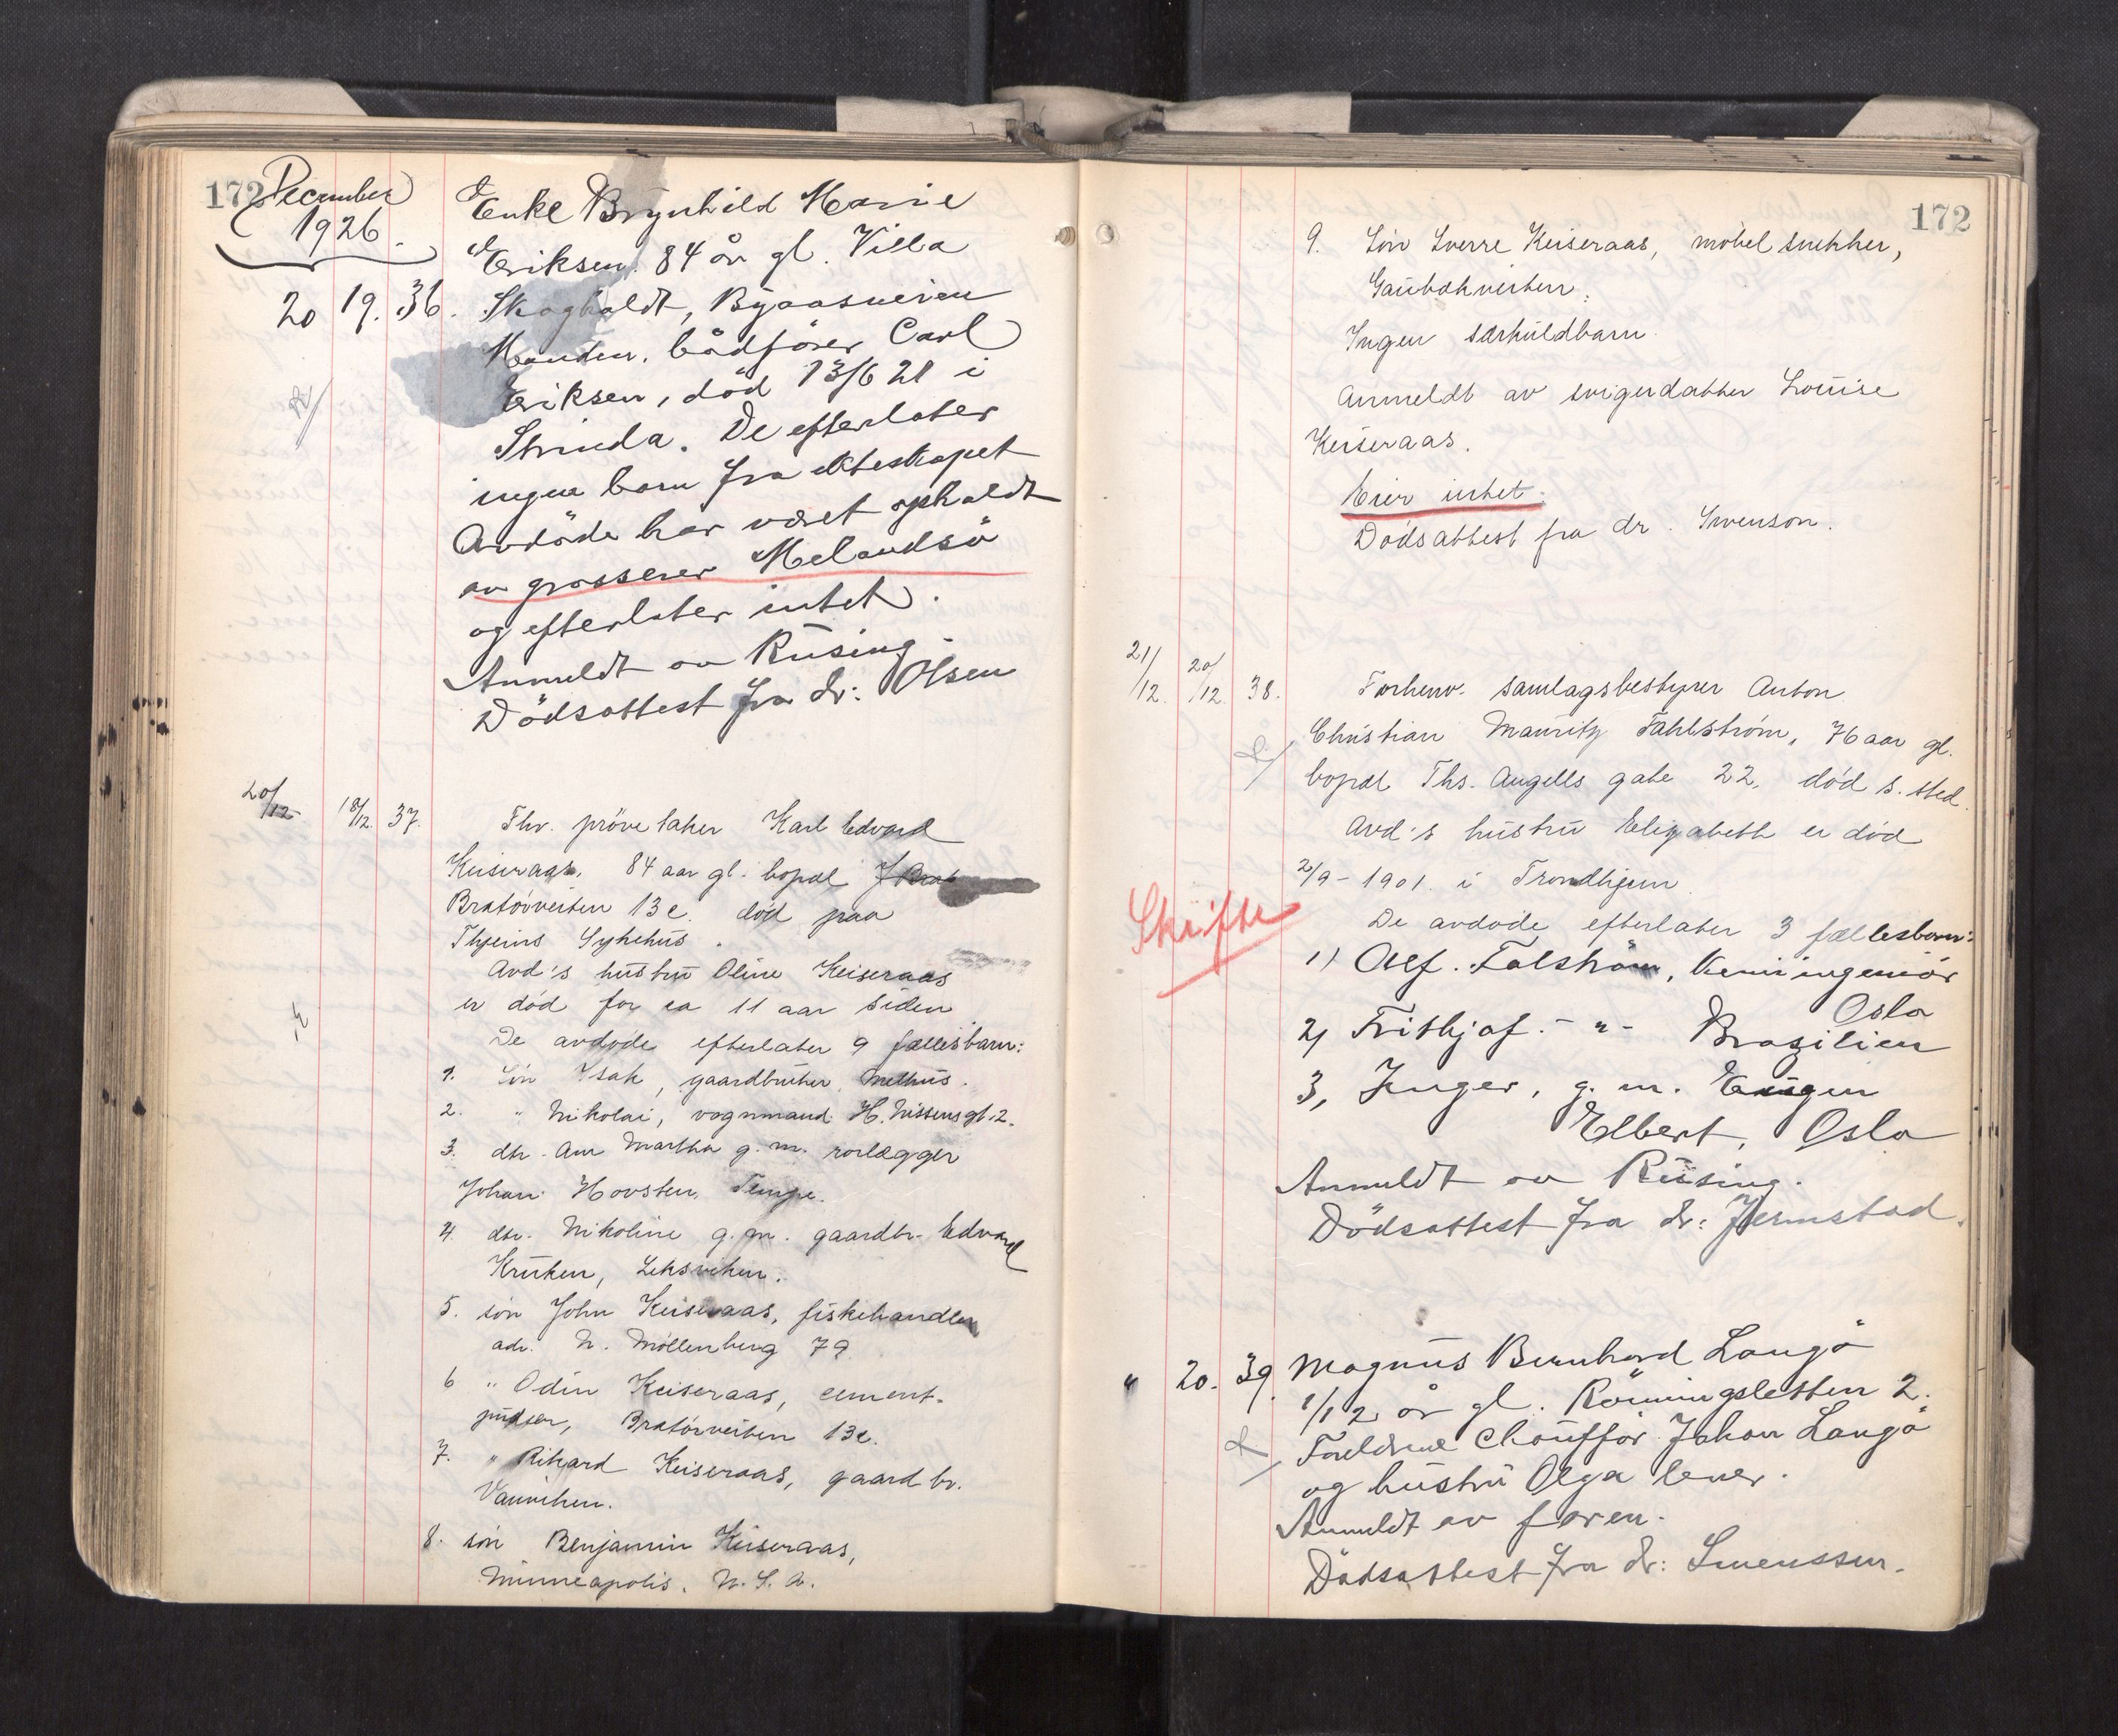 172
December
1926.
20 19. 36.
Enke Brynhild Marie
Eriksen, 84 år gl. Villa
Skogholdt, Byaasveien
Manden, bådfører Carl
Eriksen, død 13/6 21 i
Strinda. De efterlater
ingen barn fra ekteskapet
Avdöde har været opholdt
av grosserer Melandsö
og efterlater intet.
Anmeldt av Rusing.
Dödsattest fra dr: Olsen
20/12 18/12. 37.
Fhv. prövetaker Karl Edvard
Keiseraas, 84 aar gl. bopæl
Bratörveiten 13c. död paa
Thjems Sykehus.
Avd's hustru Oline Keiseraas
er död for ca 11 aar siden
De avdöde efterlater 9 fællesbarn:
1. Sön Isak, gaardbruker, Melhus.
2. " Nikolai, vognmand H. Nissens gt. 2.
3. dtr. Martha g. m. rørlægger
Johan Hovsten, Tempe.
4. dtr. Nikoline g. m. gaardbr. Edvard
Kruken, Leksviken.
5. sön John Keiseraas, fiskehandler
adr. N. Möllenberg 79
6 " Odin Keiseraas, cement-
pudser, Bratörveiten 13c.
7. " Rikard Keiseraas, gaardbr.
Vanviken.
8. sön Benjamin Keiseraas,
Minneapolis. U.S.A.
172
9. Sön Sverre Keiseraas, möbelsnekker,
Gaubækveiten.
Ingen særkuldbarn.
Anmeldt av svigerdatter Louise
Keiseraas.
Eier intet.
Dödsattest fra dr. Swenson.
21/12. 20/12. 38.
Forhenv. samlagsbestyrer Anton
Christian Mauritz Fahlström, 76 aar gl.
bopæl Ths. Angells gate 22, död s. sted.
Avd's hustru Elizabeth er död
2/9 - 1901. i Trondhjem.
Skifte
De avdöde efterlater 3 fællesbarn:
1) Alf. Falström, Kemiingeniör
Oslo
2) Frithjof. - " - Brasilien
3, Inger, g. m. Eugen
Elbert, Oslo
Anmeldt av Rusing.
Dödsattest fra dr: Jermstad.
" 20. 39.
Magnus Bernhard Langö
1/12 år gl. Rönningsletten 2.
Foreldrene Chaufför Johan Langö
og hustru Olga lever.
Anmeldt av faren.
Dödsattest fra dr: Swensson.